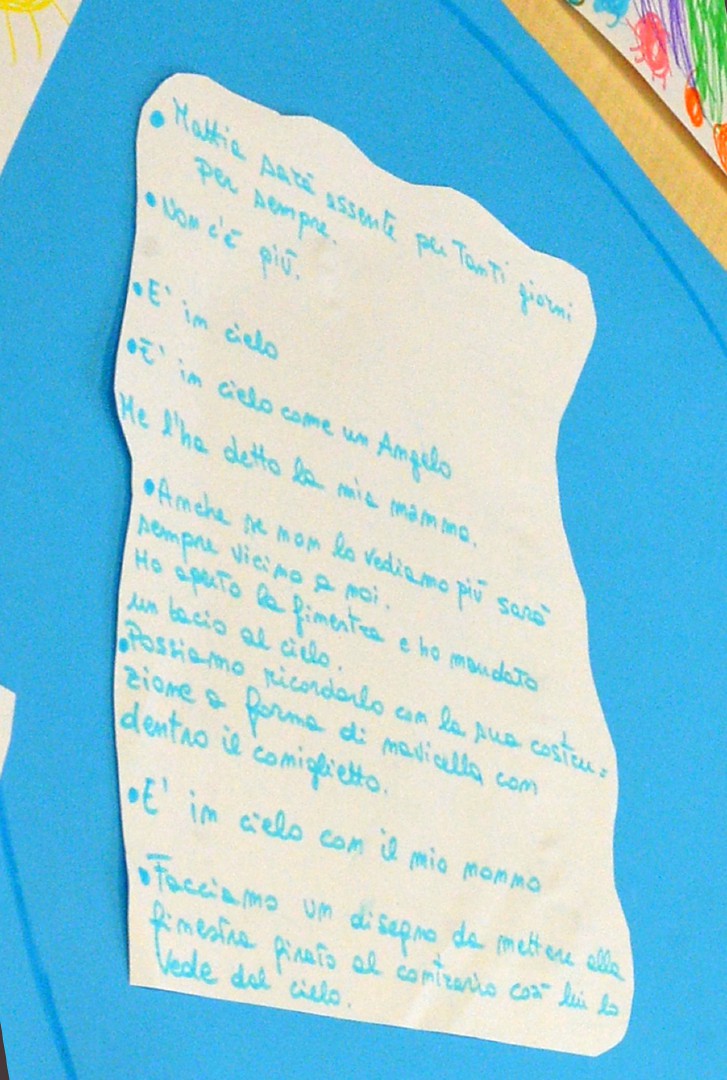 • Mattia sarà assente per Tanti giorni
per sempre.
• Non c'è più.
• E' in cielo
• E' in cielo come un Angelo
Me l'ha detto la mia mamma.
• Anche se non lo vediamo più sarà
sempre vicino a noi.
Ho aperto la finestra e ho mandato
un bacio al cielo.
• Possiamo ricordarlo con la sua costru=
zione a forma di navicella con
dentro il coniglietto.
• E' in cielo con il mio nonno
• Facciamo un disegno da mettere alla
finestra girato al contrario così lui lo
vede dal cielo.